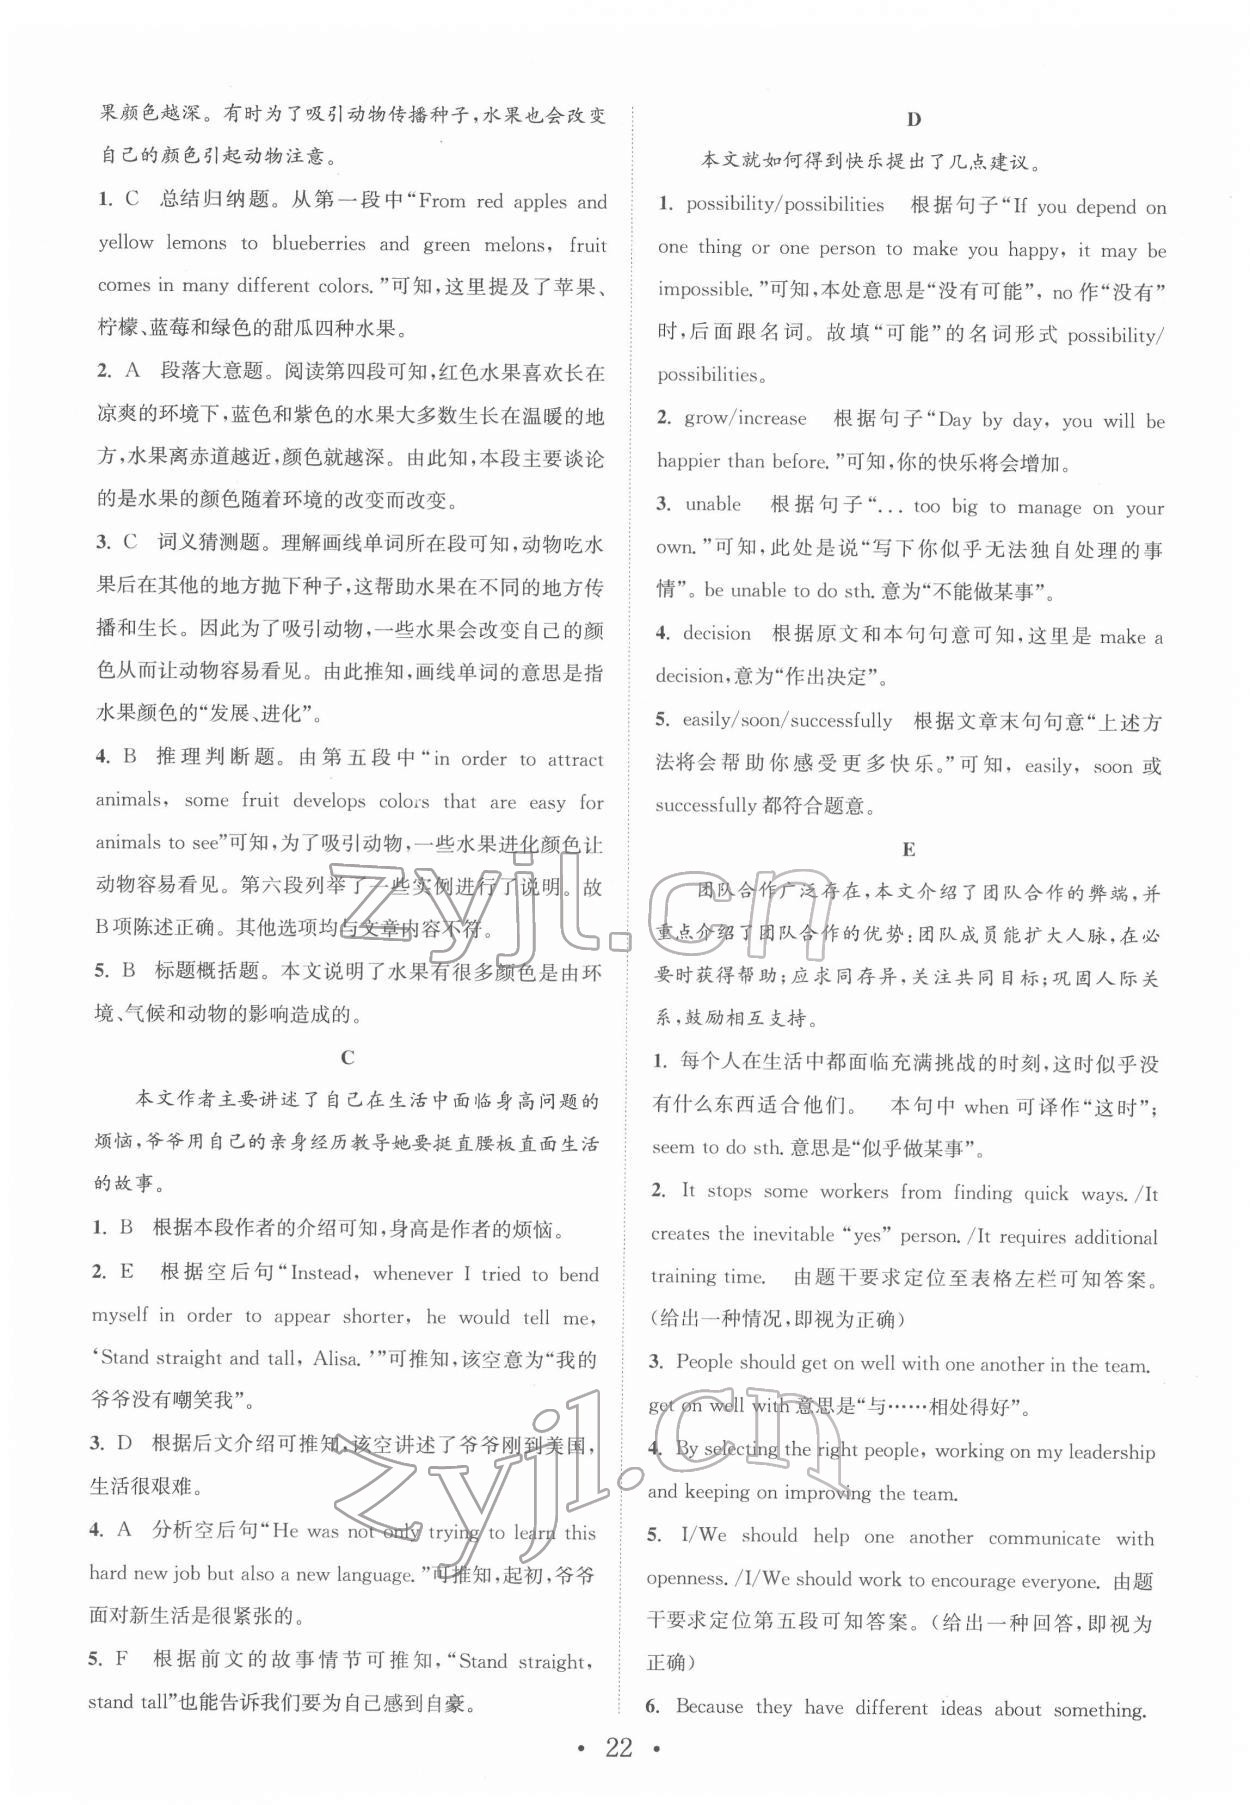 果颜色越深。有时为了吸引动物传播种子，水果也会改变
自己的颜色引起动物注意。
1. C 总结归纳题。从第一段中“From red apples and
yellow lemons to blueberries and green melons, fruit
comes in many different colors.”可知，这里提及了苹果、
柠檬、蓝莓和绿色的甜瓜四种水果。
2. A 段落大意题。阅读第四段可知，红色水果喜欢长在
凉爽的环境下，蓝色和紫色的水果大多数生长在温暖的地
方，水果离赤道越近，颜色就越深。由此知，本段主要谈论
的是水果的颜色随着环境的改变而改变。
3. C 词义猜测题。理解画线单词所在段可知，动物吃水
果后在其他的地方抛下种子，这帮助水果在不同的地方传
播和生长。因此为了吸引动物，一些水果会改变自己的颜
色从而让动物容易看见。由此推知，画线单词的意思是指
水果颜色的“发展、进化”。
4. B 推理判断题。由第五段中“in order to attract
animals, some fruit develops colors that are easy for
animals to see”可知，为了吸引动物，一些水果进化颜色让
动物容易看见。第六段列举了一些实例进行了说明。故
B项陈述正确。其他选项均与文章内容不符。
5. B 标题概括题。本文说明了水果有很多颜色是由环
境、气候和动物的影响造成的。
C
本文作者主要讲述了自己在生活中面临身高问题的
烦恼，爷爷用自己的亲身经历教导她要挺直腰板直面生活
的故事。
1. B 根据本段作者的介绍可知，身高是作者的烦恼。
2. E 根据空后句“Instead, whenever I tried to bend
myself in order to appear shorter, he would tell me,
‘Stand straight and tall, Alisa.’”可推知，该空意为“我的
爷爷没有嘲笑我”。
3. D 根据后文介绍可推知，该空讲述了爷爷刚到美国，
生活很艰难。
4. A 分析空后句“He was not only trying to learn this
hard new job but also a new language.”可推知，起初，爷爷
面对新生活是很紧张的。
5. F 根据前文的故事情节可推知，“Stand straight,
stand tall”也能告诉我们要为自己感到自豪。
D
本文就如何得到快乐提出了几点建议。
1. possibility/possibilities 根据句子“If you depend on
one thing or one person to make you happy, it may be
impossible.”可知，本处意思是“没有可能”，no作“没有”
时，后面跟名词。故填“可能”的名词形式 possibility/
possibilities。
2. grow/increase 根据句子“Day by day, you will be
happier than before.”可知，你的快乐将会增加。
3. unable 根据句子“... too big to manage on your
own.”可知，此处是说“写下你似乎无法独自处理的事
情”。be unable to do sth. 意为“不能做某事”。
4. decision 根据原文和本句句意可知，这里是 make a
decision，意为“作出决定”。
5. easily/soon/successfully 根据文章末句句意“上述方
法将会帮助你感受更多快乐。”可知，easily，soon 或
successfully 都符合题意。
E
团队合作广泛存在，本文介绍了团队合作的弊端，并
重点介绍了团队合作的优势：团队成员能扩大人脉，在必
要时获得帮助；应求同存异，关注共同目标；巩固人际关
系，鼓励相互支持。
1. 每个人在生活中都面临充满挑战的时刻，这时似乎没
有什么东西适合他们。 本句中 when 可译作“这时”；
seem to do sth. 意思是“似乎做某事”。
2. It stops some workers from finding quick ways. /It
creates the inevitable “yes” person. /It requires additional
training time. 由题干要求定位至表格左栏可知答案。
（给出一种情况，即视为正确）
3. People should get on well with one another in the team.
get on well with 意思是“与……相处得好”。
4. By selecting the right people, working on my leadership
and keeping on improving the team.
5. I/We should help one another communicate with
openness. /I/We should work to encourage everyone. 由题
干要求定位第五段可知答案。（给出一种回答，即视为
正确）
6. Because they have different ideas about something.
• 22 •
zyjl.cn
zyjl.cn